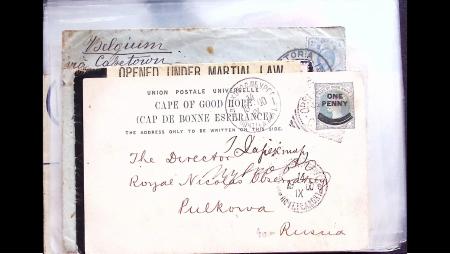 Belgium
via Capetown
OPENED UNDER MARTIAL LAW
UNION POSTALE UNIVERSELLE
CAPE OF GOOD HOPE
(CAP DE BONNE ESPÉRANCE)
THE ADDRESS ONLY TO BE WRITTEN ON THIS SIDE.
ONE
PENNY
The Director
Royal Nicolas Observatory
Pulkowa
Russia